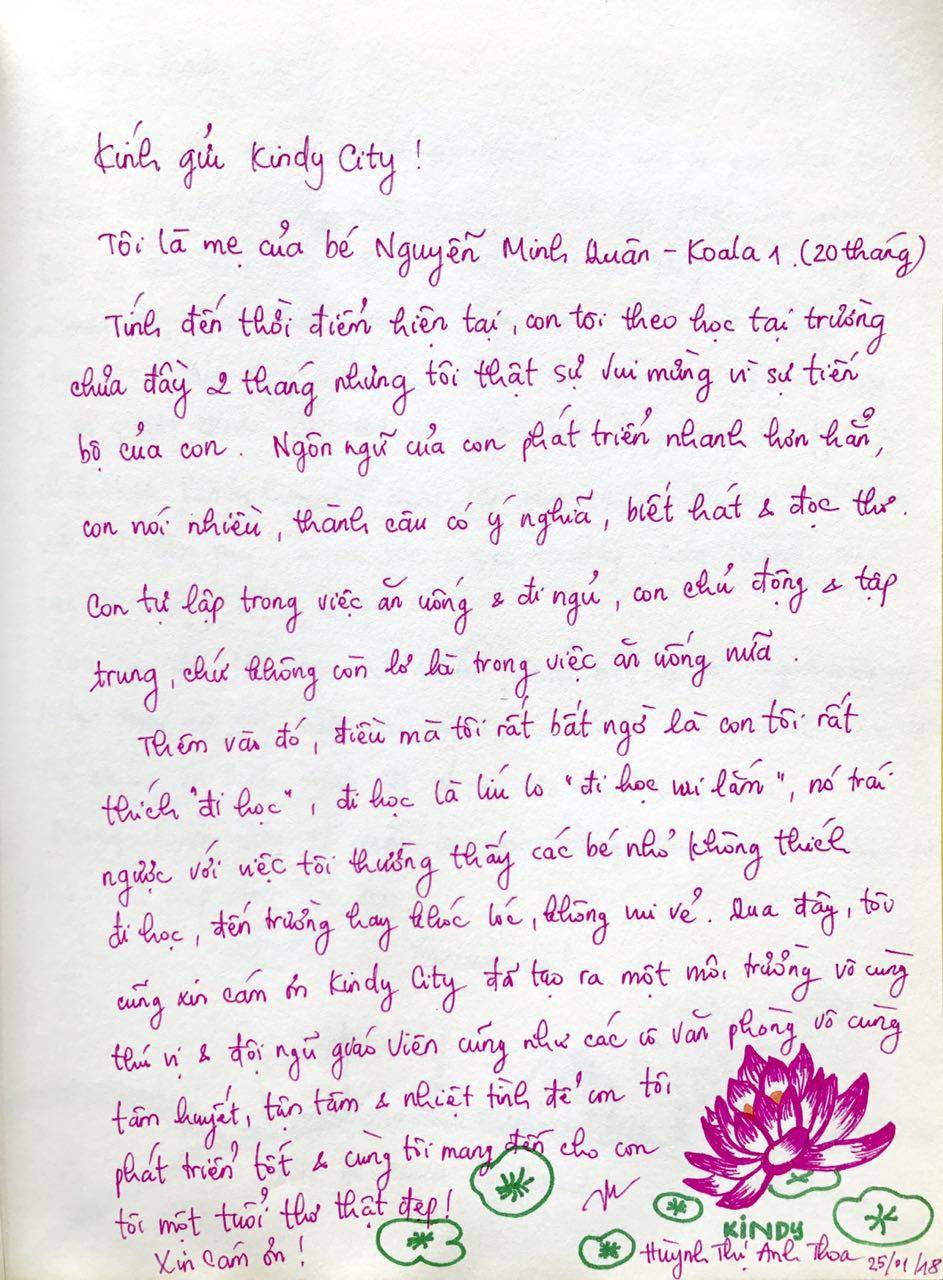 Kính gửi Kindy City !
Tôi là mẹ của bé Nguyễn Minh Quân - Koala 1. (20 tháng)
Tính đến thời điểm hiện tại, con tôi theo học tại trường
chưa đầy 2 tháng nhưng tôi thật sự vui mừng vì sự tiến
bộ của con. Ngôn ngữ của con phát triển nhanh hơn hẳn,
con nói nhiều, thành câu có ý nghĩa, biết hát & đọc thơ.
Con tự lập trong việc ăn uống & đi ngủ, con chủ động & tập
trung, chứ không còn lơ là trong việc ăn uống nữa.
Thêm vào đó, điều mà tôi rất bất ngờ là con tôi rất
thích "đi học", đi học là líu lo "đi học vui lắm", nó trái
ngược với việc tôi thường thấy các bé nhỏ không thích
đi học, đến trường hay khóc lóc, không vui vẻ. Qua đây, tôi
cũng xin cám ơn Kindy City đã tạo ra một môi trường vô cùng
thú vị & đội ngũ giáo viên cũng như các cô văn phòng vô cùng
tâm huyết, tận tâm & nhiệt tình để con tôi
phát triển tốt & cùng tôi mang đến cho con
tôi một tuổi thơ thật đẹp!
Xin cám ơn !
KINDY
Huỳnh Thị Anh Thoa 25/01/18